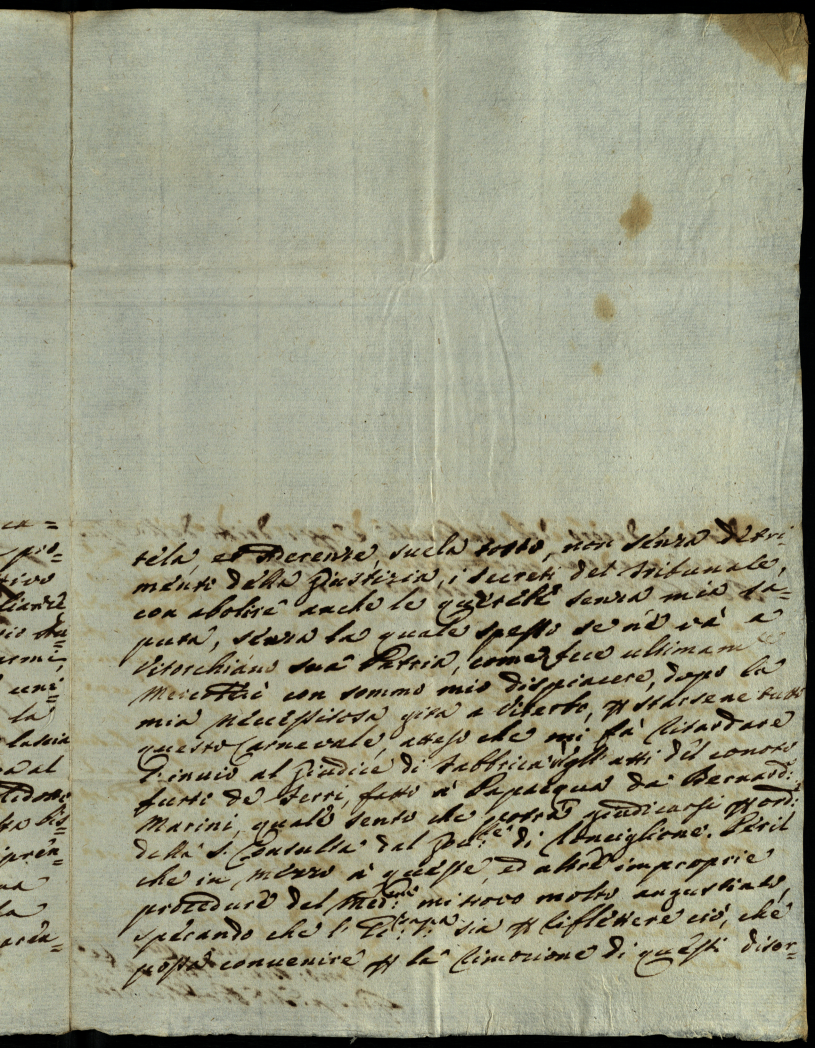 ca=
pro=
la
lascia
al
la
tela, et decenze, svela tosto, non senza detri-
mento della Giustizia, i secreti del Tribunale,
con abolire anche le querele senza mia sa=
puta, senza la quale spesso se n'è và a
Vitorchiano sua Patria, come fece ultimam.e
con sommo mio dispiacere, dopo la
mia necessitosa gita a Viterbo, p starsene tutto
questo Carnevale, atteso che mi fà ritardare
l'invio al Giudice di Fabbrica degli atti del conoto
furto de Ferri, fatto à Papacqua da Bernard:
Marini, quale sento che potrà giudicarsi p ord:
della S. Consulta dal Gov.re di Ronciglione. Peril
che in mezzo à queste, ed altre improprie
procedure del med.mo mi trovo molto angustiato,
sperando che l' sia p riflettere ciò, che
possa convenire p la rimozione di questi disor-